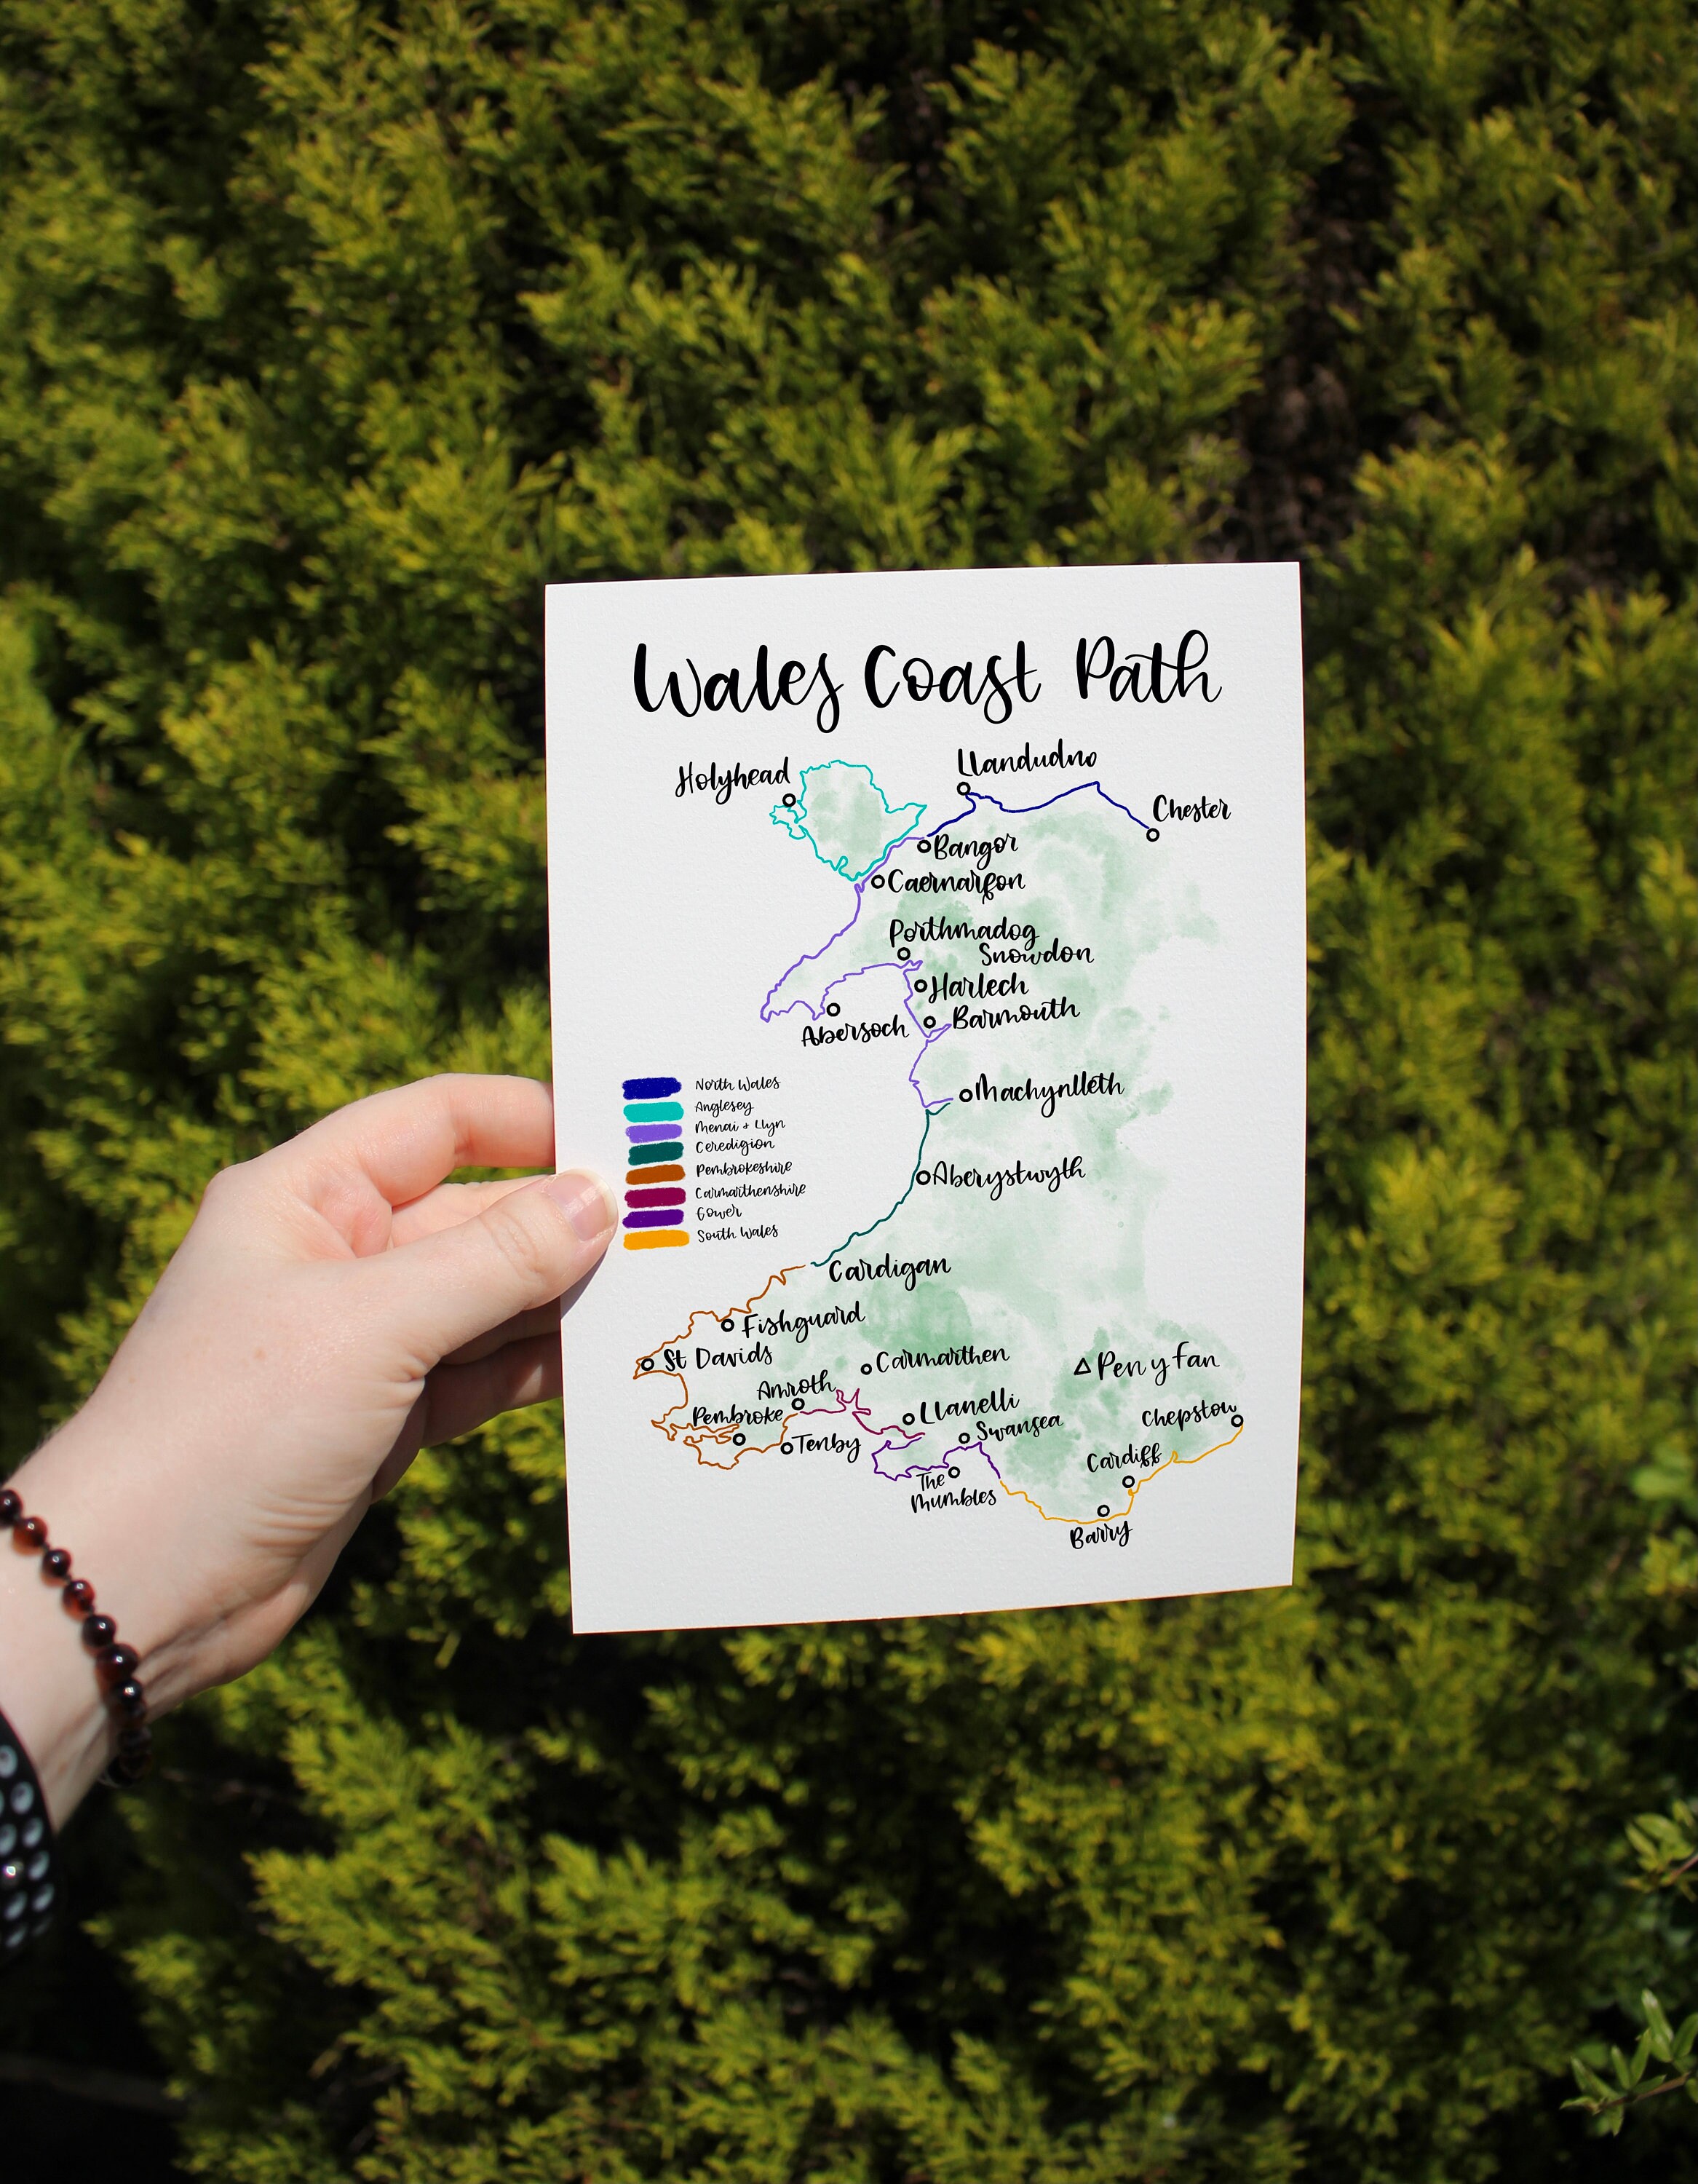 Wales Coast Path
Holyhead
Llandudno
Chester
Bangor
Caernarfon
Porthmadog
Snowdon
Harlech
Barmouth
Abersoch
North Wales
Anglesey
Menai + Llyn
Ceredigion
Pembrokeshire
Carmarthenshire
Gower
South Wales
Machynlleth
Aberystwyth
Cardigan
Fishguard
St Davids
Carmarthen
Pen y Fan
Amroth
Pembroke
Llanelli
Chepstow
Tenby
Swansea
Cardiff
The
Mumbles
Barry